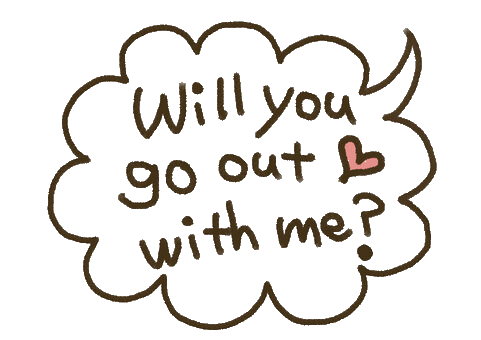 Will you
go out
with me?